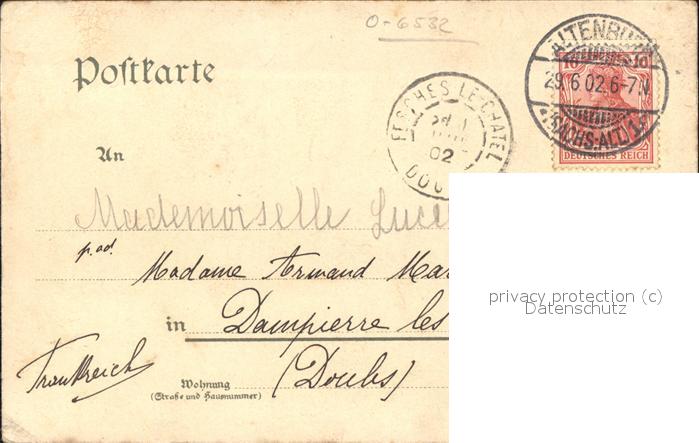 O-6532
Postkarte
ALTENBURG
29.6.02.6-7N.
* (SACHS.-ALT.) 1 *
10 10
DEUTSCHES REICH
FESCHES-LE-CHATEL
02
DOUBS
An
Mademoiselle Luce
p. ad.
Madame Armand Mar
in Dampierre les
Frankreich
Wohnung
(Straße und Hausnummer)
(Doubs)
privacy protection (c)
Datenschutz